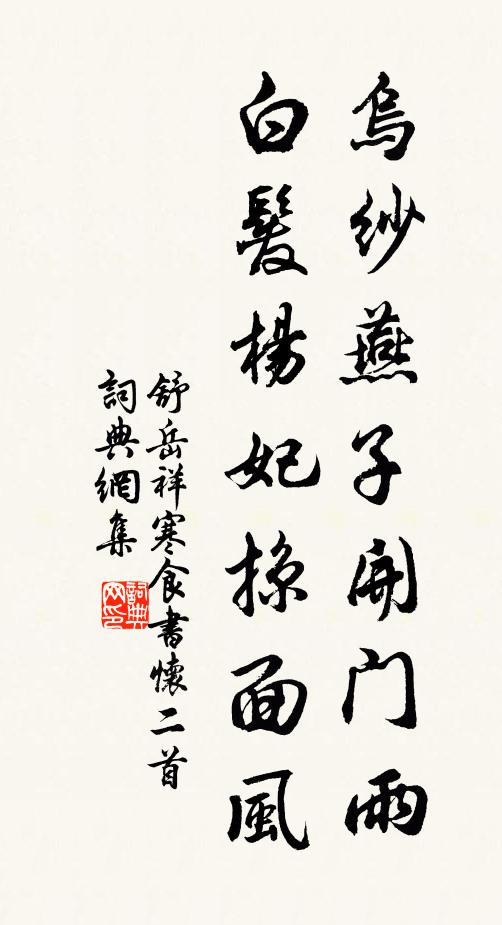 烏紗燕子開門雨
白髮楊妃掠面風
舒岳祥寒食書懷二首
詞典網集
詞典网印